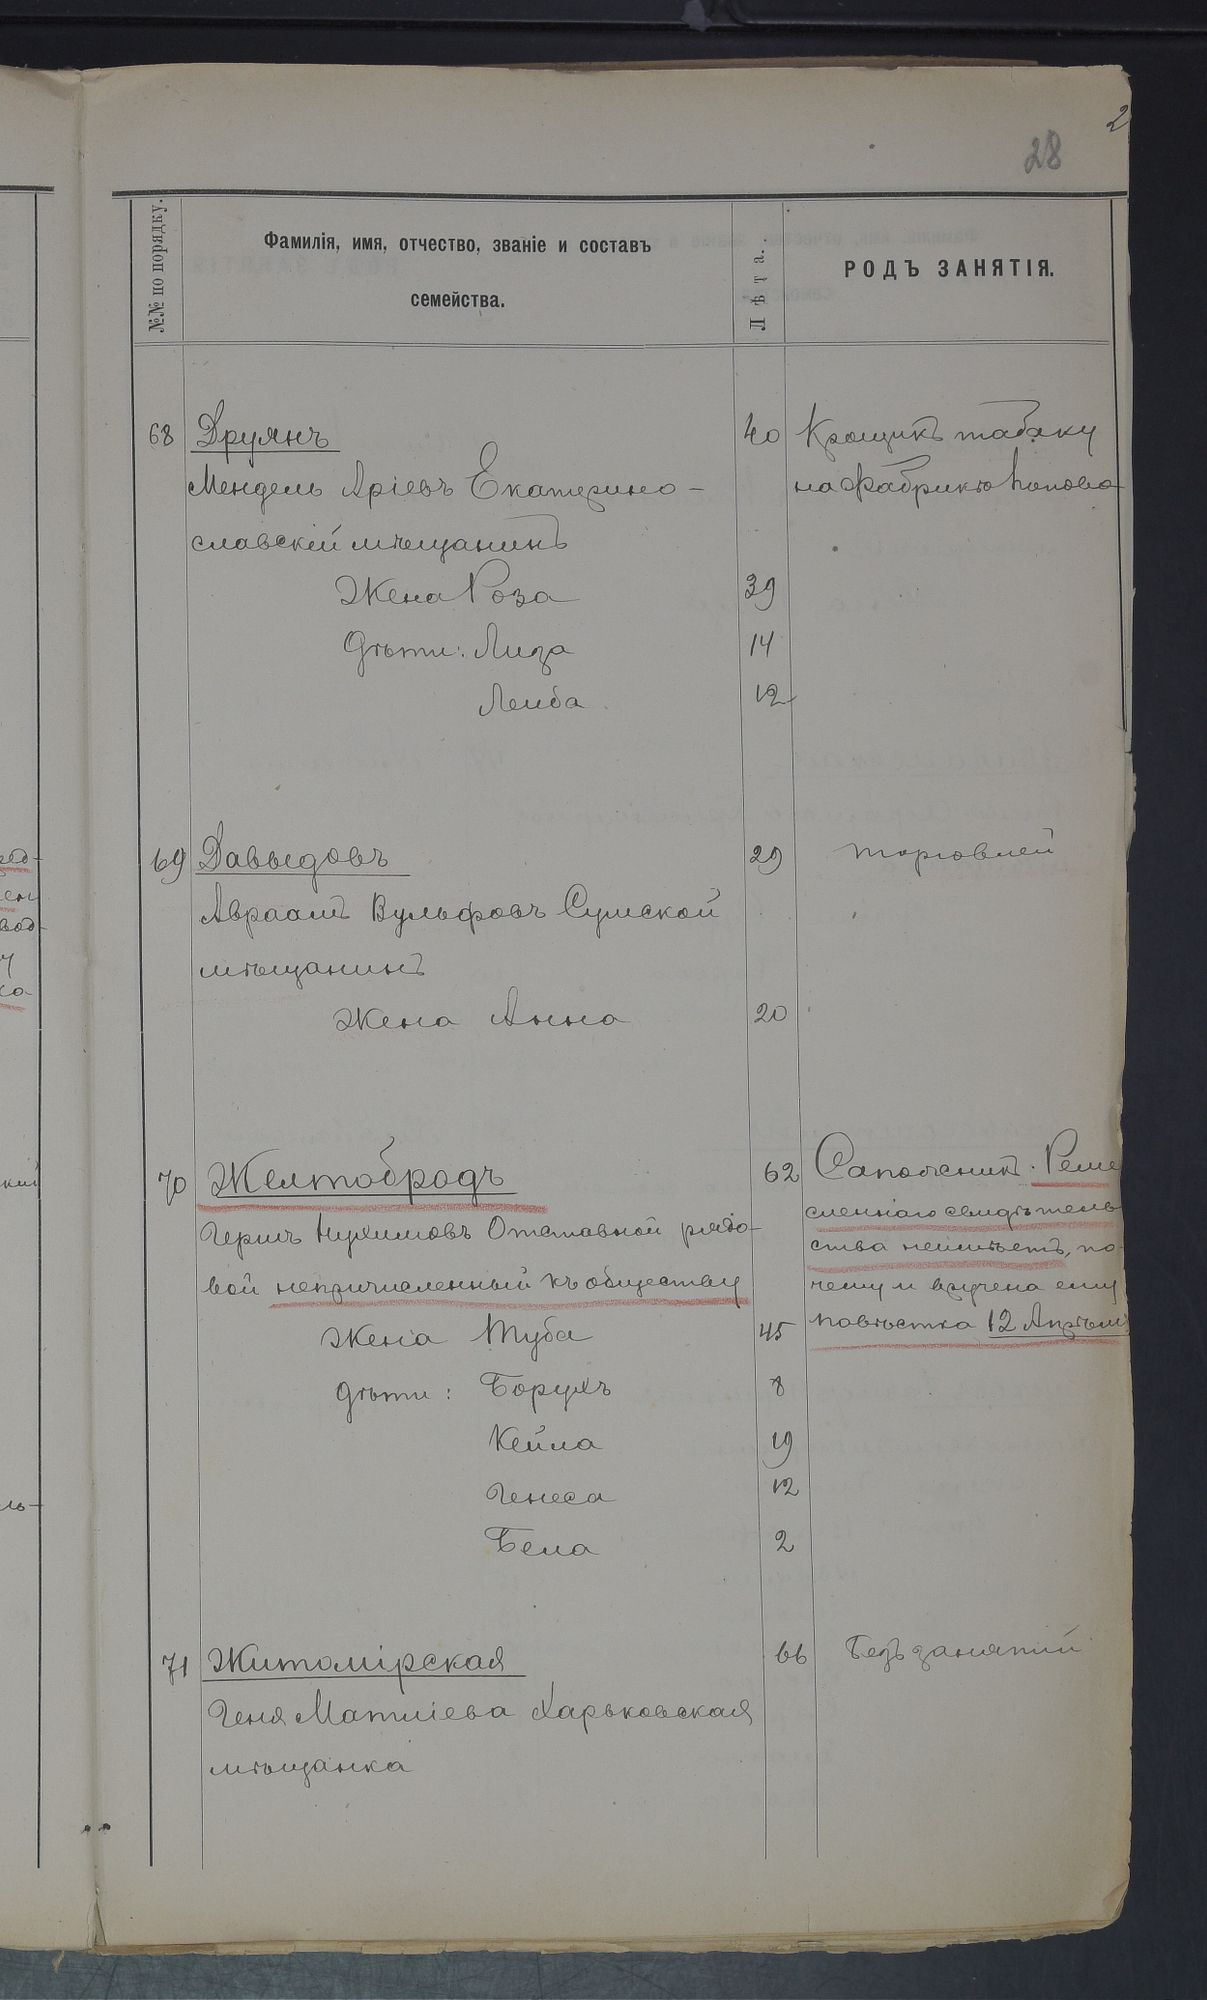 2
28
№№ по порядку.
Фамилія, имя, отчество, званіе и составъ
семейства.
Лѣта.
РОДЪ ЗАНЯТІЯ.
68 Друянъ 40 Крошикъ табаку
Мендель Аріевъ Екатерино- на фабрикѣ Попова
славскій мѣщанинъ
Жена Роза 39
Дѣти: Лиза 14
Лейба 12
69 Давыдовъ 29 торговлей
Авраамъ Вульфовъ Сумской
мѣщанинъ
Жена Анна 20
70 Желтобродъ 62 Сапожникъ. Реме
Гершъ Нухимовъ Отставной рядо- сленнаго свидѣтель-
вой непричисленный къ обществу ства неимѣетъ, по-
чему и вручена ему
Жена Туба 45 повѣстка 12 Апрѣля
Дѣти: Борухъ 8
Кейла 19
Генеса 12
Бела 2
71 Житомірская 66 Безъ занятій
Геня Матвіева Харьковская
мѣщанка